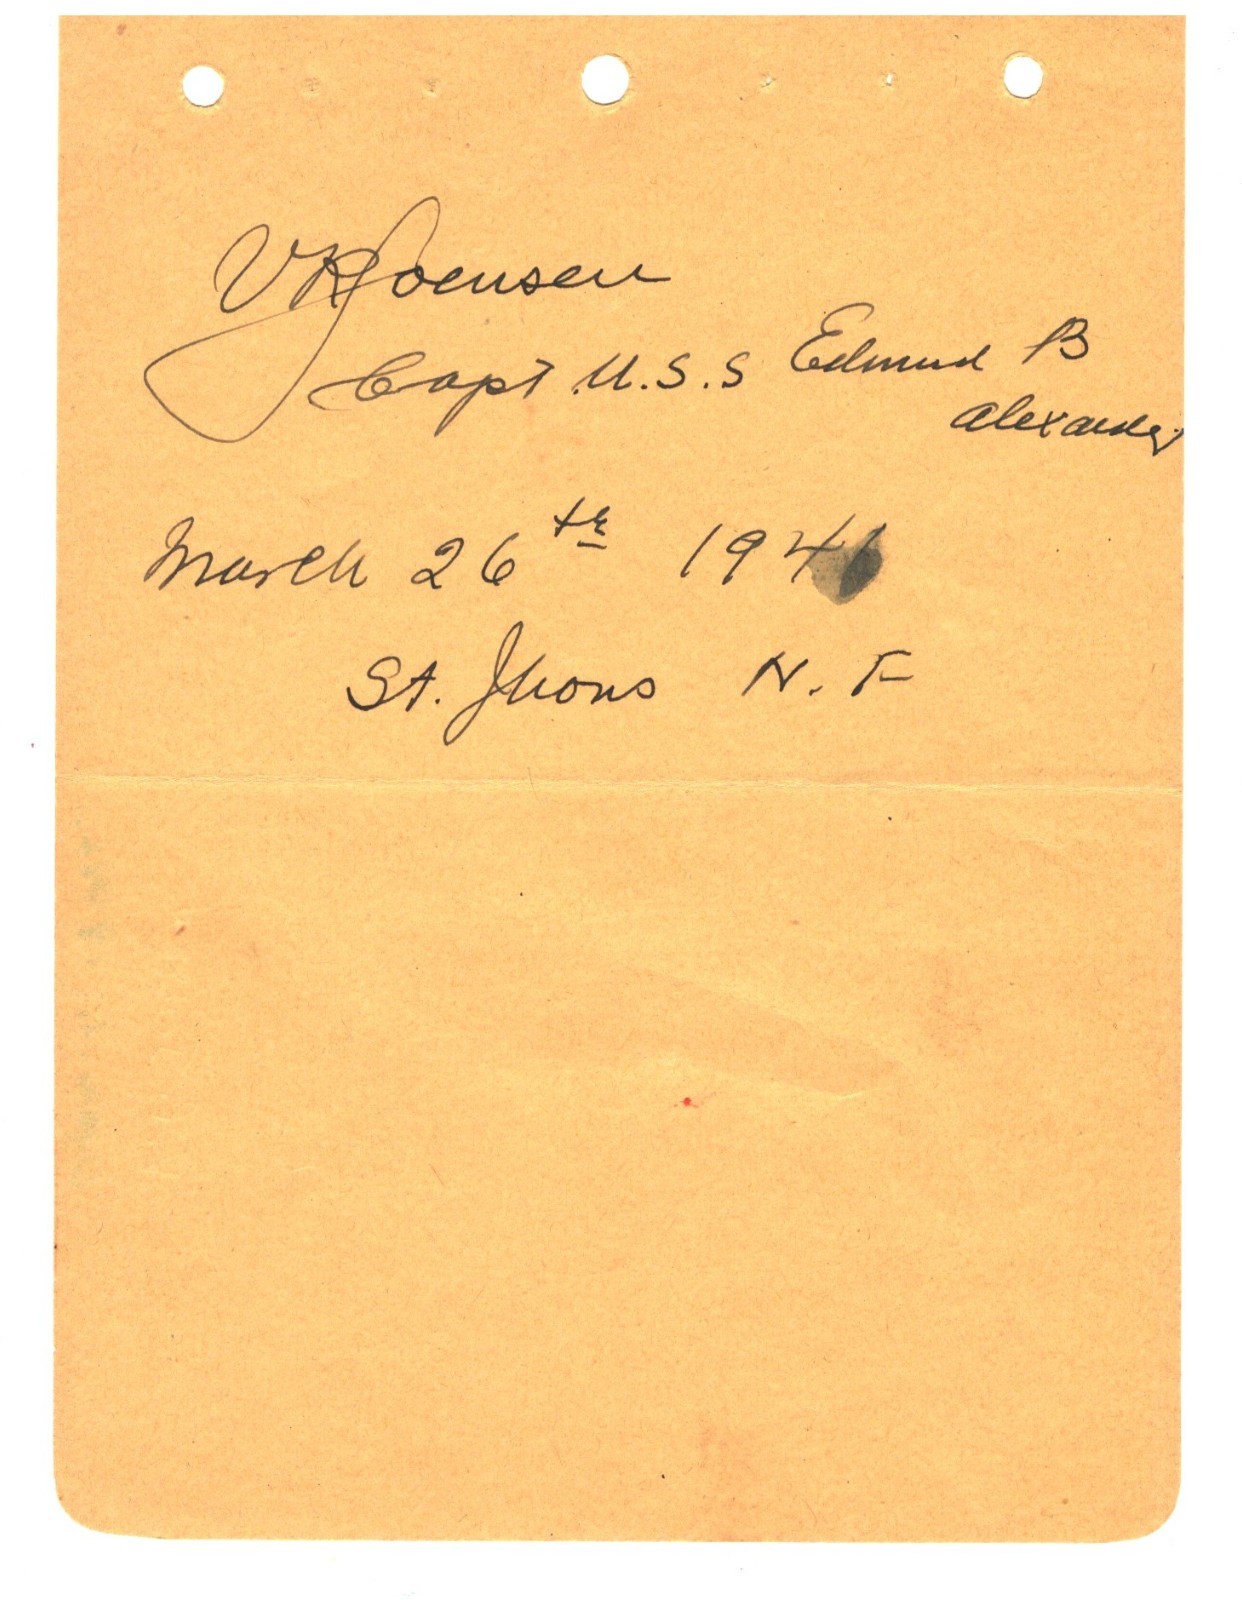 V R Joensen
Capt U.S.S Edmund B
Alexander
March 26th 1941
St. Jhons N. F